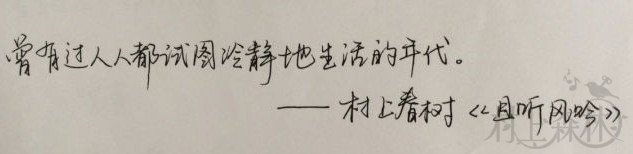 曾有过人人都试图冷静地生活的年代。
—— 村上春树《且听风吟》
村上森林